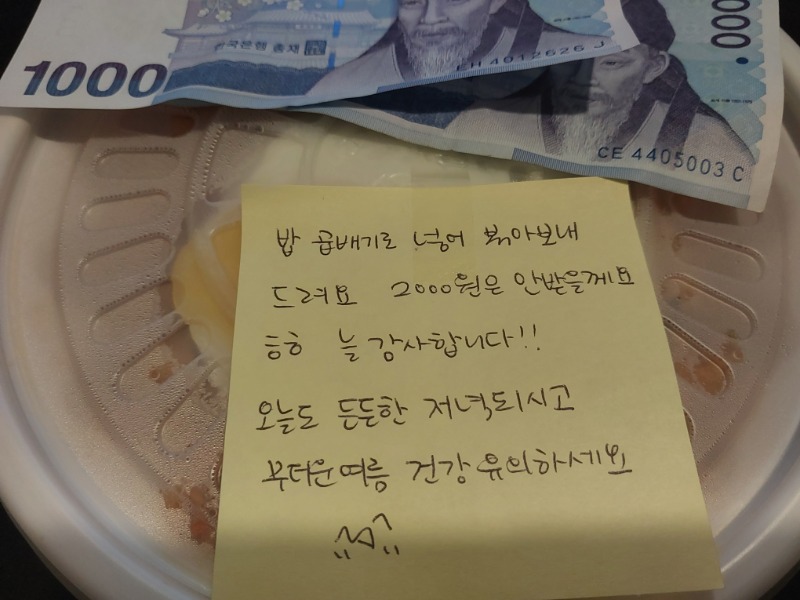 1000
한국은행 총재
EH 4012626 J
000
CE 4405003 C
밥 곱배기로 넣어 볶아보내
드려요 2000원은 안받을께요
ㅎㅎ 늘 감사합니다!!
오늘도 든든한 저녁되시고
무더운여름 건강유의하세요